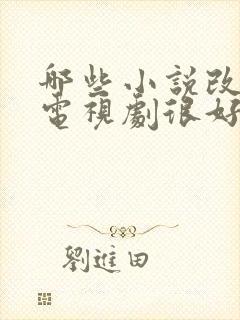 哪些小說改
電視劇很好
劉進田